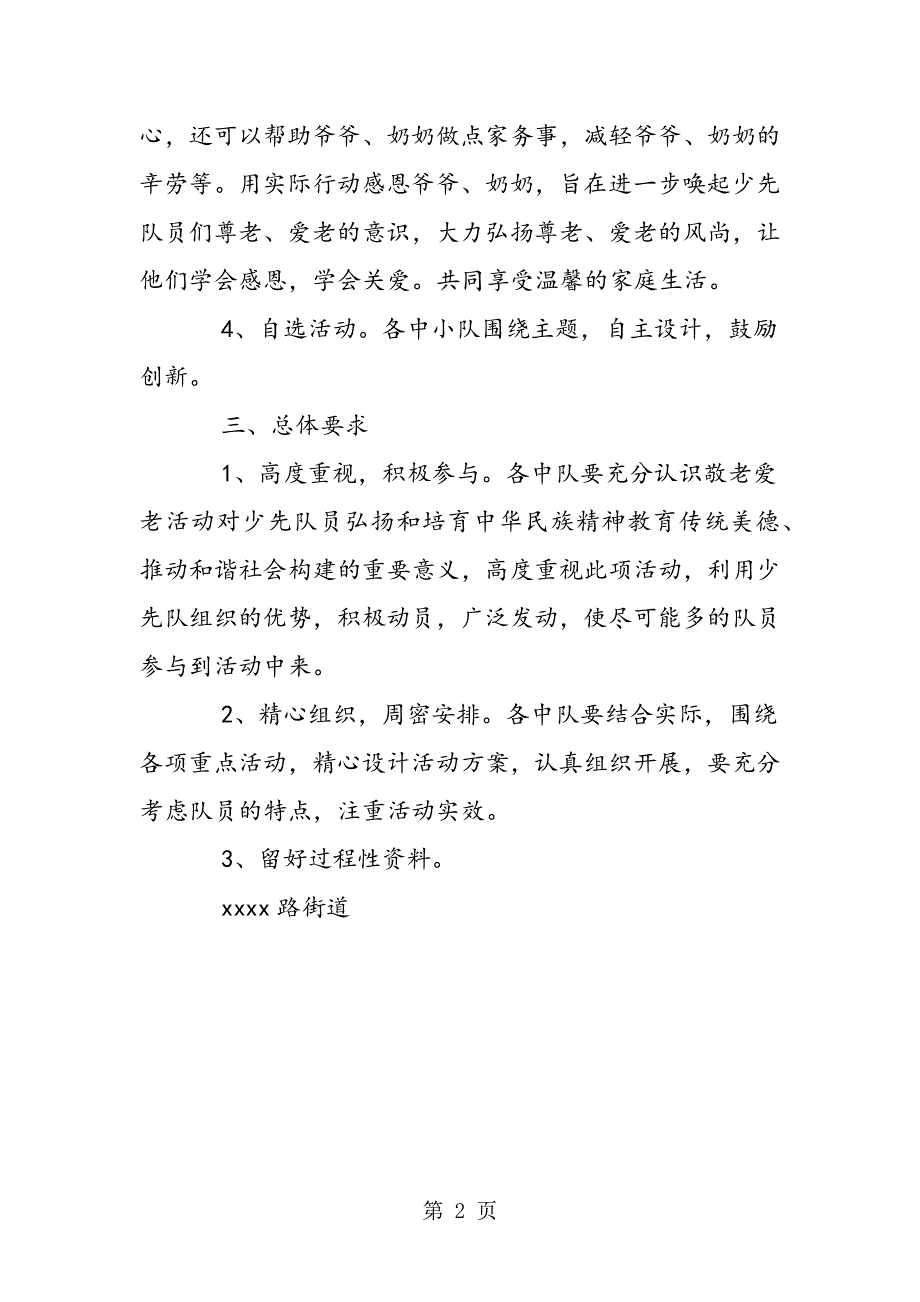 心，还可以帮助爷爷、奶奶做点家务事，减轻爷爷、奶奶的
辛劳等。用实际行动感恩爷爷、奶奶，旨在进一步唤起少先
队员们尊老、爱老的意识，大力弘扬尊老、爱老的风尚，让
他们学会感恩，学会关爱。共同享受温馨的家庭生活。
4、自选活动。各中小队围绕主题，自主设计，鼓励
创新。
三、总体要求
1、高度重视，积极参与。各中队要充分认识敬老爱
老活动对少先队员弘扬和培育中华民族精神教育传统美德、
推动和谐社会构建的重要意义，高度重视此项活动，利用少
先队组织的优势，积极动员，广泛发动，使尽可能多的队员
参与到活动中来。
2、精心组织，周密安排。各中队要结合实际，围绕
各项重点活动，精心设计活动方案，认真组织开展，要充分
考虑队员的特点，注重活动实效。
3、留好过程性资料。
xxxx 路街道
第 2 页